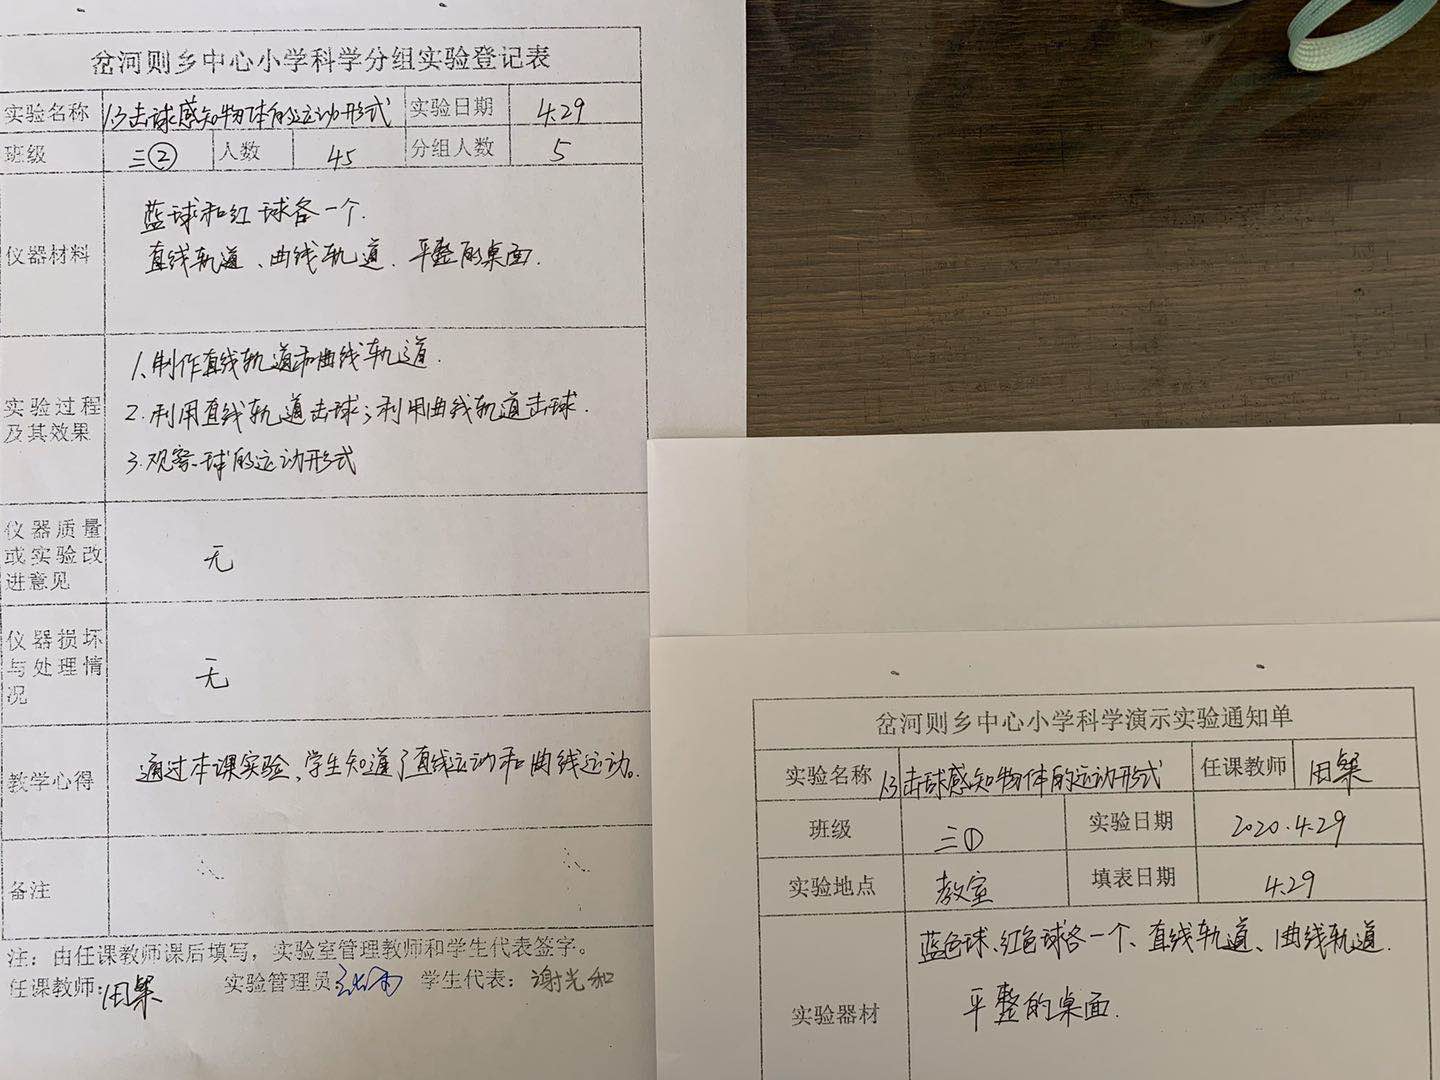 岔河则乡中心小学科学分组实验登记表
实验名称 13击球感知物体的运动形式 实验日期 4.29
班级 三② 人数 45 分组人数 5
仪器材料
蓝球和红球各一个.
直线轨道、曲线轨道、平整的桌面.
实验过程
及其效果
1.制作直线轨道和曲线轨道.
2.利用直线轨道击球;利用曲线轨道击球.
3.观察球的运动形式
仪器质量
或实验改
进意见
无
仪器损坏
与处理情
况
无
教学心得 通过本课实验、学生知道了直线运动和曲线运动。
备注
注：由任课教师课后填写，实验室管理教师和学生代表签字。
任课教师: 田 实验管理员 学生代表：谢光和
岔河则乡中心小学科学演示实验通知单
实验名称 13击球感知物体的运动形式 任课教师 田
班级 三① 实验日期 2020.4.29
实验地点 教室 填表日期 4.29
实验器材
蓝色球、红色球各一个、直线轨道、曲线轨道.
平整的桌面.